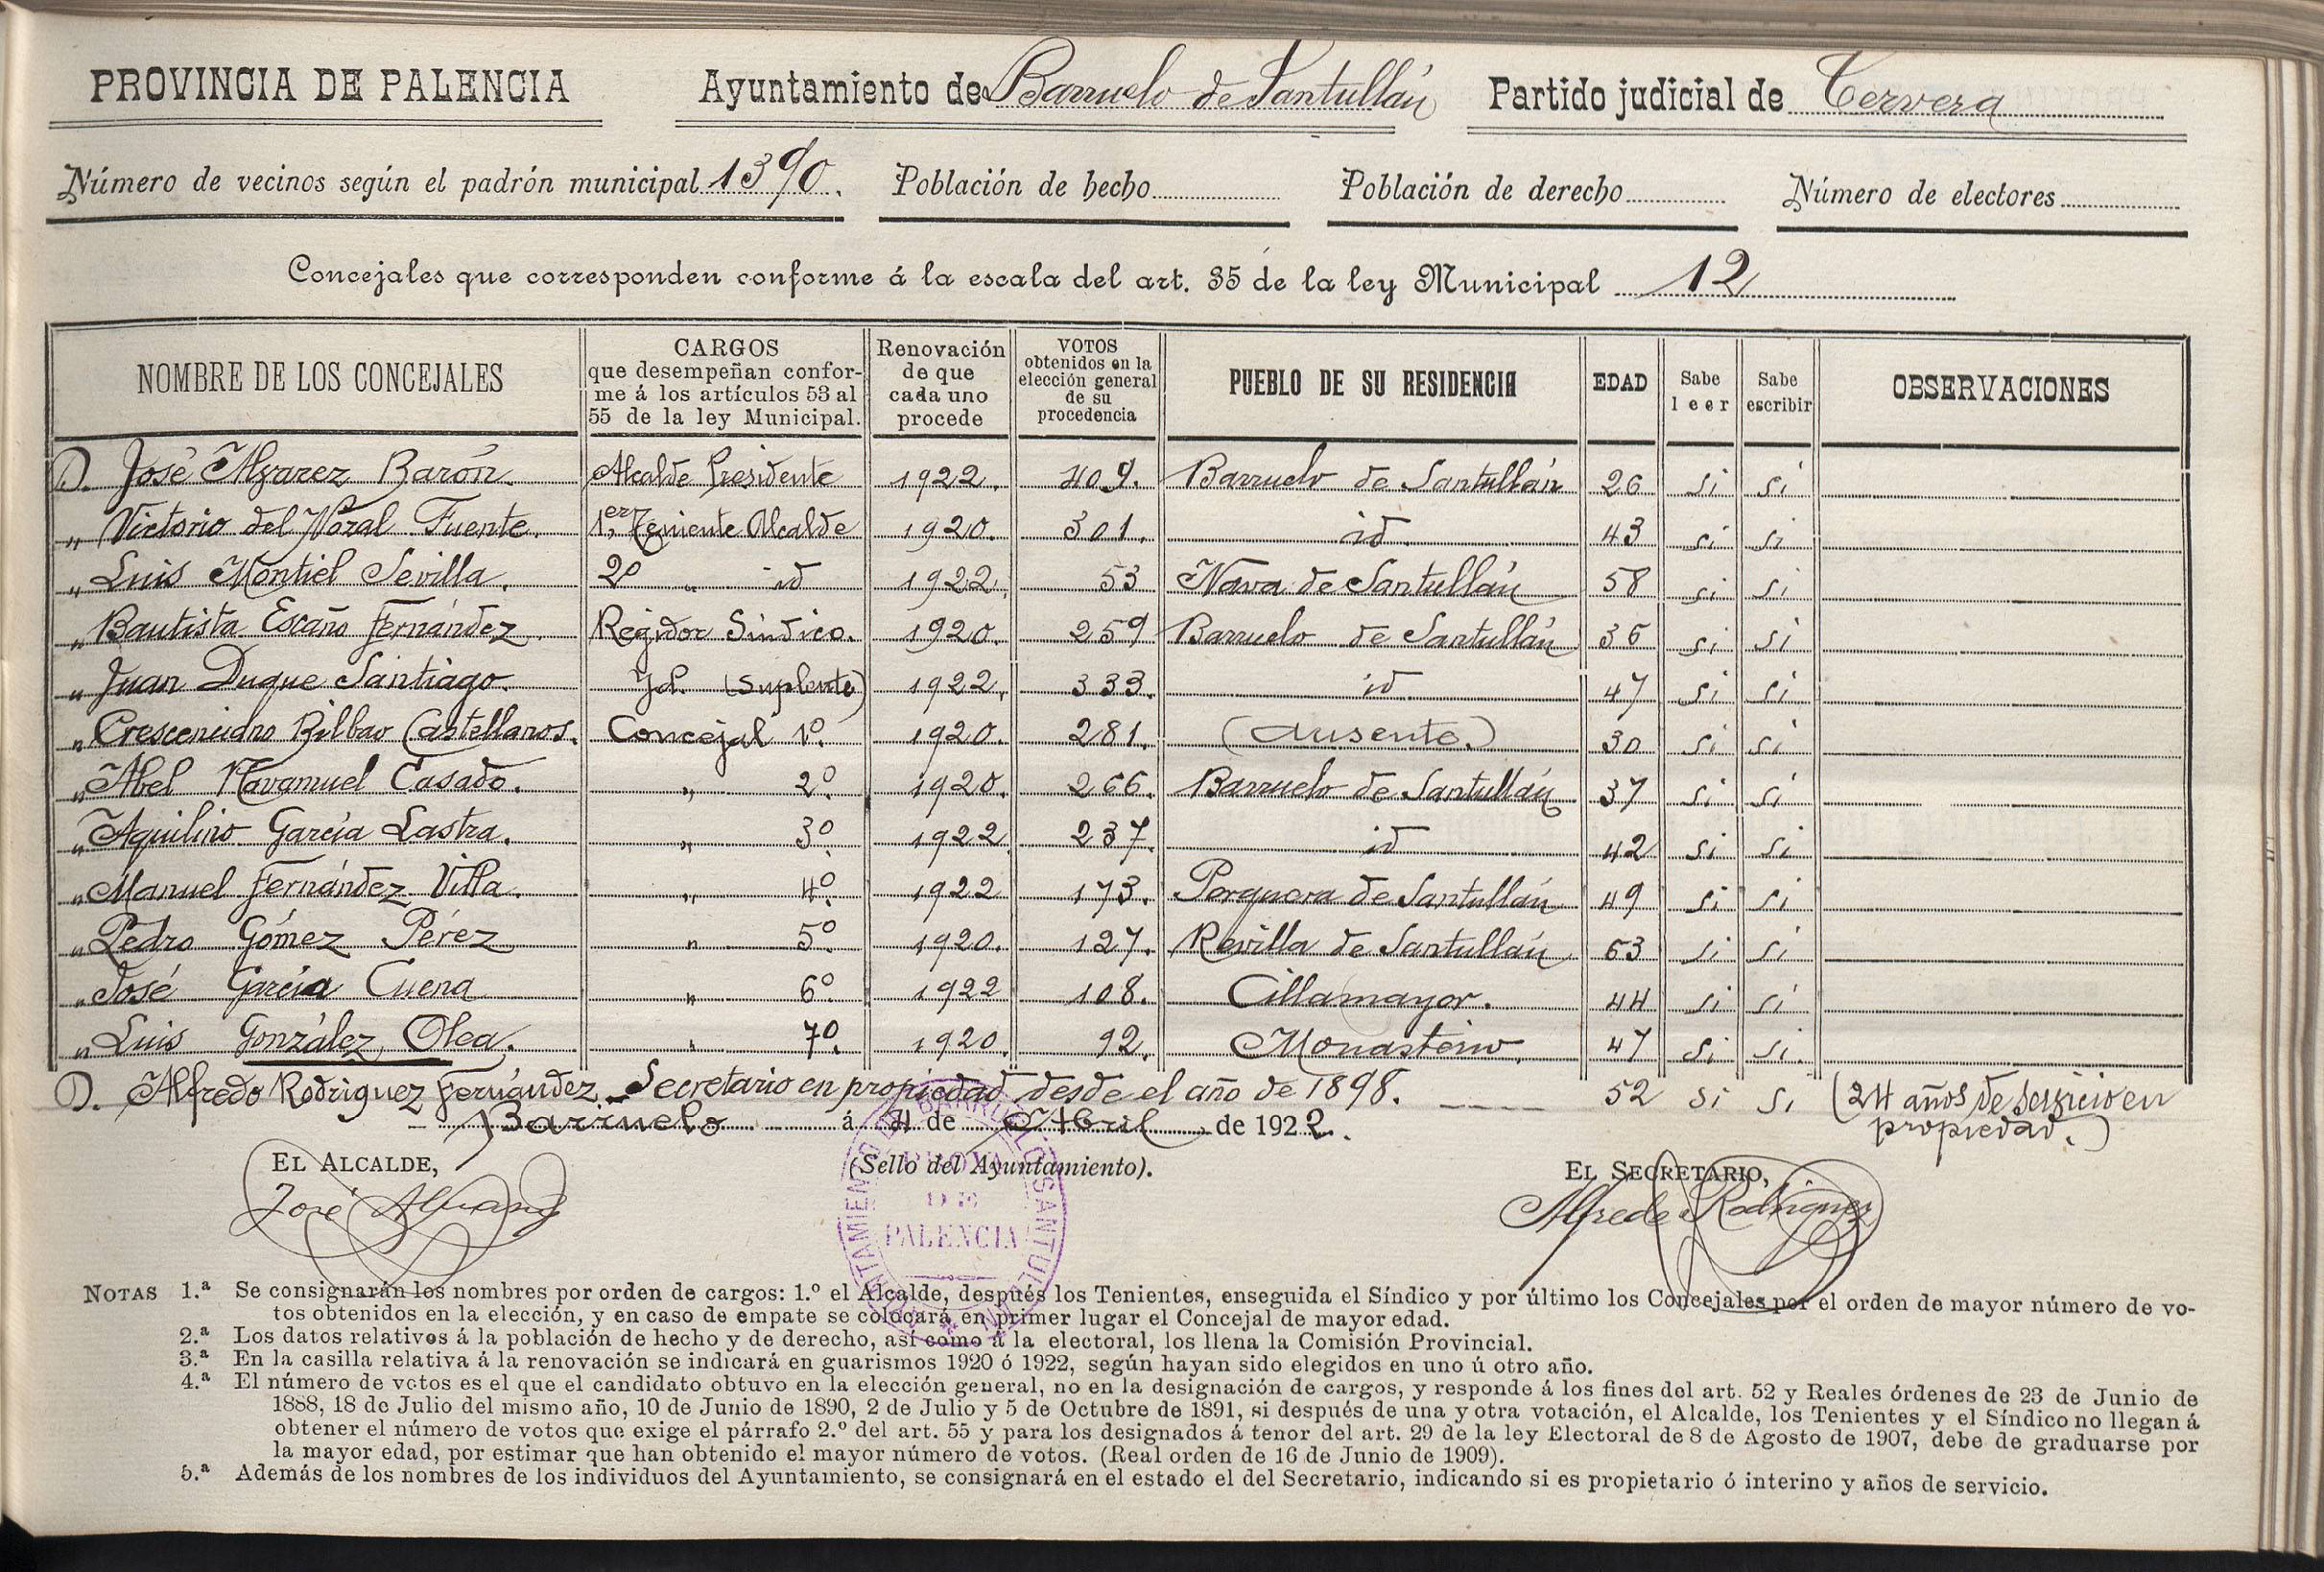 PROVINCIA DE PALENCIA Ayuntamiento de Barruelo de Santullán Partido judicial de Cervera
Número de vecinos según el padrón municipal 1390. Población de hecho Población de derecho Número de electores
Concejales que corresponden conforme á la escala del art. 35 de la ley Municipal 12
NOMBRE DE LOS CONCEJALES CARGOS que desempeñan confor-me á los artículos 53 al 55 de la ley Municipal. Renovación de que cada uno procede VOTOS obtenidos en la elección general de su procedencia PUEBLO DE SU RESIDENCIA EDAD Sabe leer Sabe escribir OBSERVACIONES
D. José Alvarez Barón. Alcalde Presidente 1922. 409. Barruelo de Santullán 26 si si
" Victorio del Nozal Fuente. 1er Teniente Alcalde 1920. 301. id. 43 si si
" Luis Montiel Sevilla. 2º " id 1922. 53 Nava de Santullán 58 si si
" Bautista Escaño Fernández. Regidor Síndico. 1920. 259 Barruelo de Santullán 36 si si
" Juan Duque Santiago. Id. (Suplente) 1922. 333. id 47 si si
" Crescenciano Bilbao Castellanos. Concejal 1º. 1920. 281. (Ausente.) 30 si si
" Abel Navamuel Casado. " 2º. 1920. 266. Barruelo de Santullán 37 si si
" Aquilino García Lastra. " 3º. 1922. 237. id 42 si si
" Manuel Fernández Villa. " 4º. 1922 173. Porquera de Santullán 49 si si
" Pedro Gómez Pérez " 5º. 1920. 127. Revilla de Santullán 63 si si
" José García Cuena " 6º. 1922 108. Cillamayor. 44 si si
" Luis González Olea. " 7º. 1920. 92. Monasterio. 47 si si.
D. Alfredo Rodriguez Fernández Secretario en propiedad desde el año de 1898. 52 si si (24 años de servicio en propiedad.)
Barruelo á 4 de Abril de 1922.
EL ALCALDE, (Sello del Ayuntamiento). EL SECRETARIO,
José Alvarez Alfredo Rodriguez
DE
PALENCIA
NOTAS 1.ª Se consignarán los nombres por orden de cargos: 1.º el Alcalde, después los Tenientes, enseguida el Síndico y por último los Concejales por el orden de mayor número de vo-
tos obtenidos en la elección, y en caso de empate se colocará en primer lugar el Concejal de mayor edad.
2.ª Los datos relativos á la población de hecho y de derecho, así como á la electoral, los llena la Comisión Provincial.
3.ª En la casilla relativa á la renovación se indicará en guarismos 1920 ó 1922, según hayan sido elegidos en uno ú otro año.
4.ª El número de votos es el que el candidato obtuvo en la elección general, no en la designación de cargos, y responde á los fines del art. 52 y Reales órdenes de 23 de Junio de
1888, 18 de Julio del mismo año, 10 de Junio de 1890, 2 de Julio y 5 de Octubre de 1891, si después de una y otra votación, el Alcalde, los Tenientes y el Síndico no llegan á
obtener el número de votos que exige el párrafo 2.º del art. 55 y para los designados á tenor del art. 29 de la ley Electoral de 8 de Agosto de 1907, debe de graduarse por
la mayor edad, por estimar que han obtenido el mayor número de votos. (Real orden de 16 de Junio de 1909).
5.ª Además de los nombres de los individuos del Ayuntamiento, se consignará en el estado el del Secretario, indicando si es propietario ó interino y años de servicio.